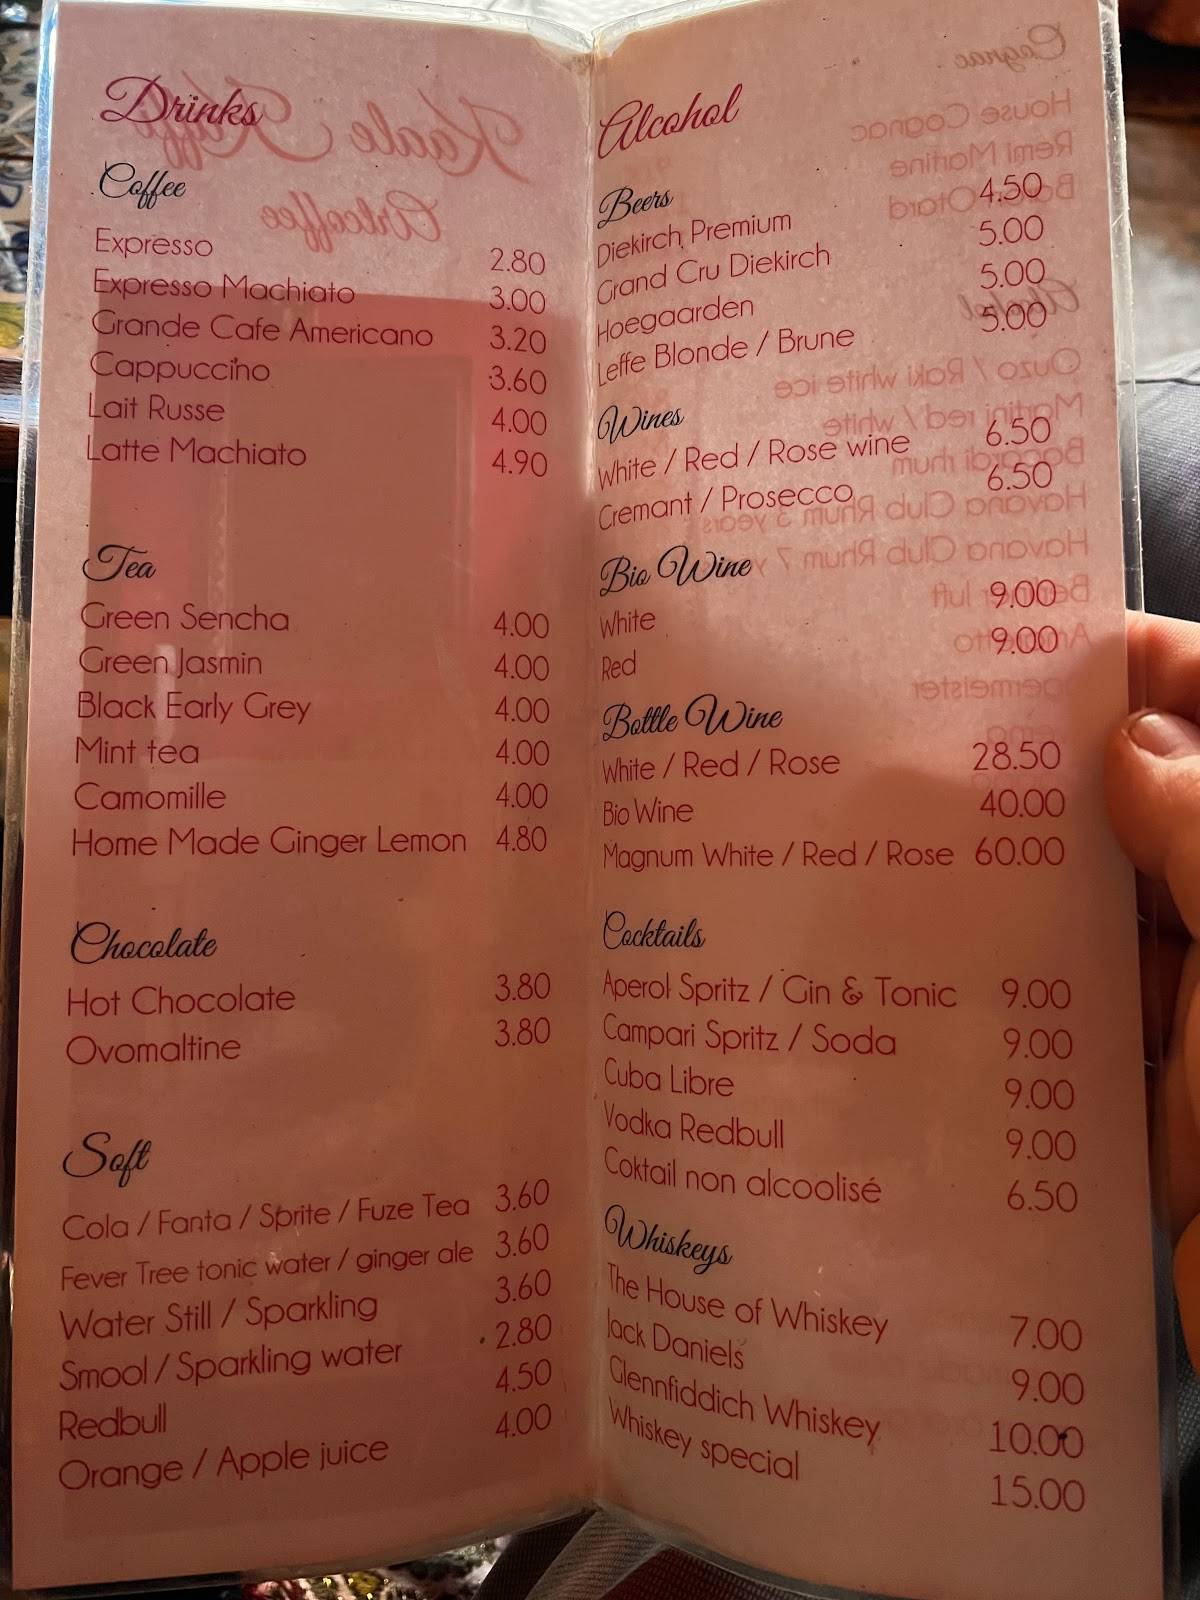 Drinks
Coffee
Expresso 2.80
Expresso Machiato 3.00
Grande Cafe Americano 3.20
Cappuccino 3.60
Lait Russe 4.00
Latte Machiato 4.90
Tea
Green Sencha 4.00
Green Jasmin 4.00
Black Early Grey 4.00
Mint tea 4.00
Camomille 4.00
Home Made Ginger Lemon 4.80
Chocolate
Hot Chocolate 3.80
Ovomaltine 3.80
Soft
Cola / Fanta / Sprite / Fuze Tea 3.60
Fever Tree tonic water / ginger ale 3.60
Water Still / Sparkling 3.60
Smool / Sparkling water 2.80
Redbull 4.50
Orange / Apple juice 4.00
Kaale Kaffi
Artcoffee
Alcohol
Beers
Diekirch Premium 4.50
Grand Cru Diekirch 5.00
Hoegaarden 5.00
Leffe Blonde / Brune 5.00
Wines
White / Red / Rose wine 6.50
Cremant / Prosecco 6.50
Bio Wine
White 9.00
Red 9.00
Bottle Wine
White / Red / Rose 28.50
Bio Wine 40.00
Magnum White / Red / Rose 60.00
Cocktails
Aperol Spritz / Gin & Tonic 9.00
Campari Spritz / Soda 9.00
Cuba Libre 9.00
Vodka Redbull 9.00
Coktail non alcoolisé 6.50
Whiskeys
The House of Whiskey 7.00
Jack Daniels 9.00
Glennfiddich Whiskey 10.00
Whiskey special 15.00
Cognac
House Cognac
Remi Martine
Otard
Alcohol
Ouzo / Raki white ice
Martini red / white
Bacardi rhum
Havana Club Rhum 3 years
Havana Club Rhum 7